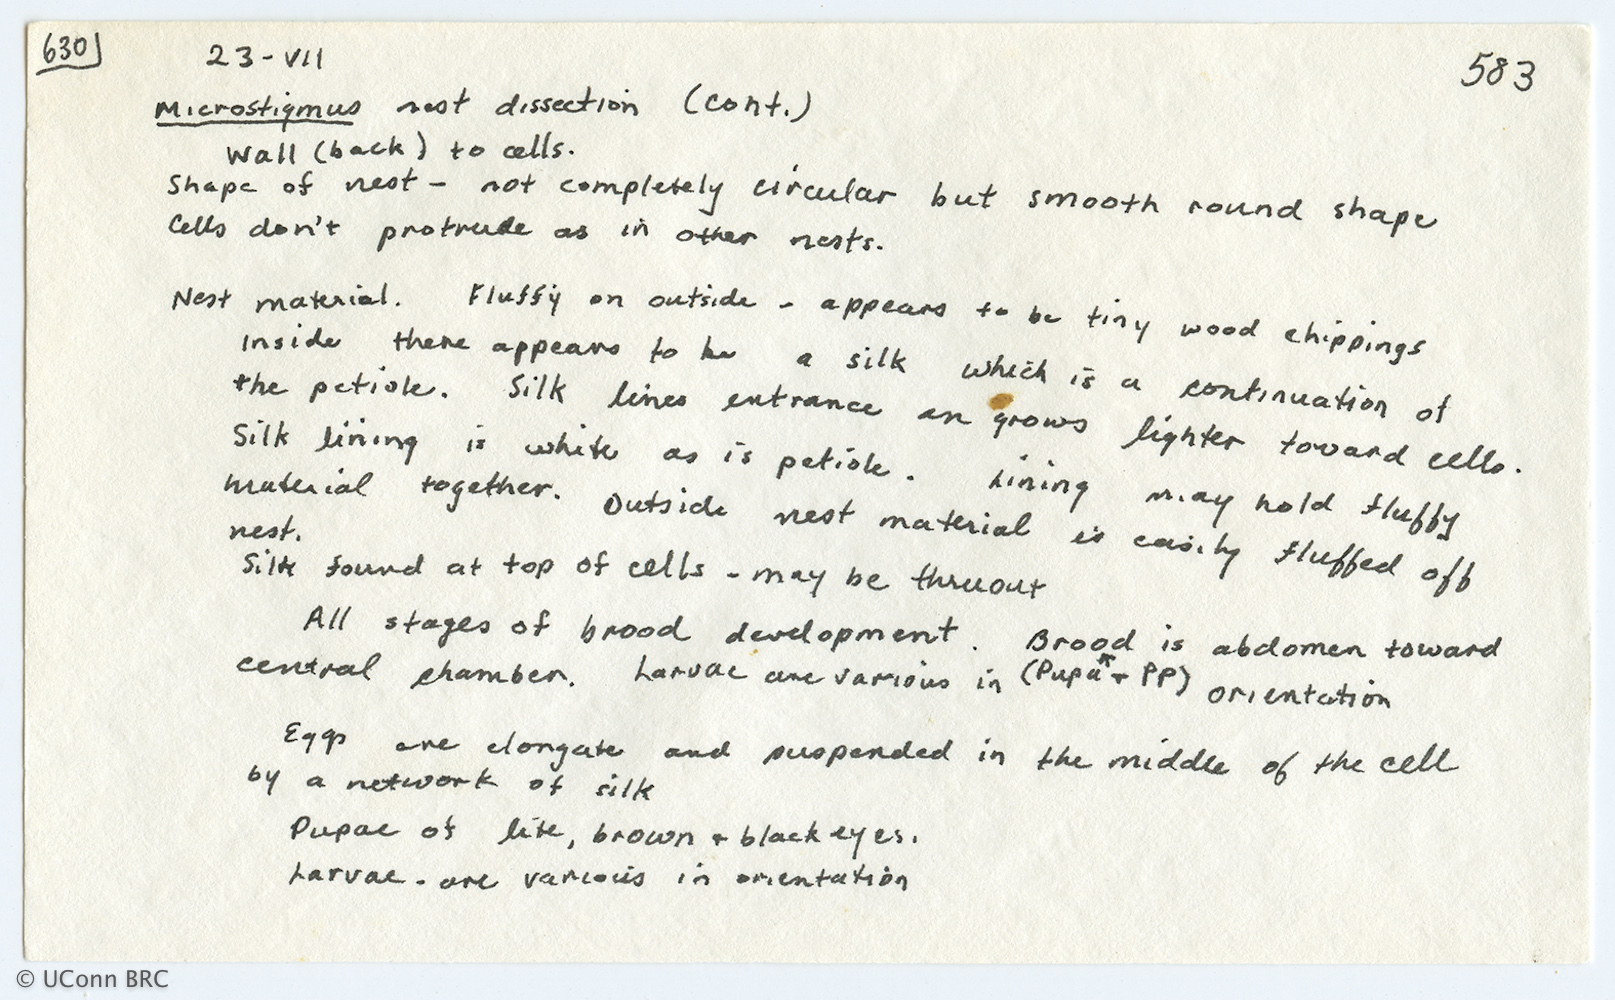 630
23-VII
583
Microstigmus nest dissection (cont.)
Wall (back) to cells.
Shape of nest - not completely circular but smooth round shape
Cells don't protrude as in other nests.
Nest material. Fluffy on outside - appears to be tiny wood chippings
Inside there appears to be a silk which is a continuation of
the petiole. Silk lines entrance an grows lighter toward cells.
Silk lining is white as is petiole. Lining may hold fluffy
material together. Outside nest material is easily fluffed off
nest.
Silk found at top of cells - may be thruout
All stages of brood development. Brood is abdomen toward
central chamber. Larvae are various in (Pupa + PP) orientation
Eggs are elongate and suspended in the middle of the cell
by a network of silk
Pupae of lite, brown + black eyes.
Larvae - are various in orientation
© UConn BRC